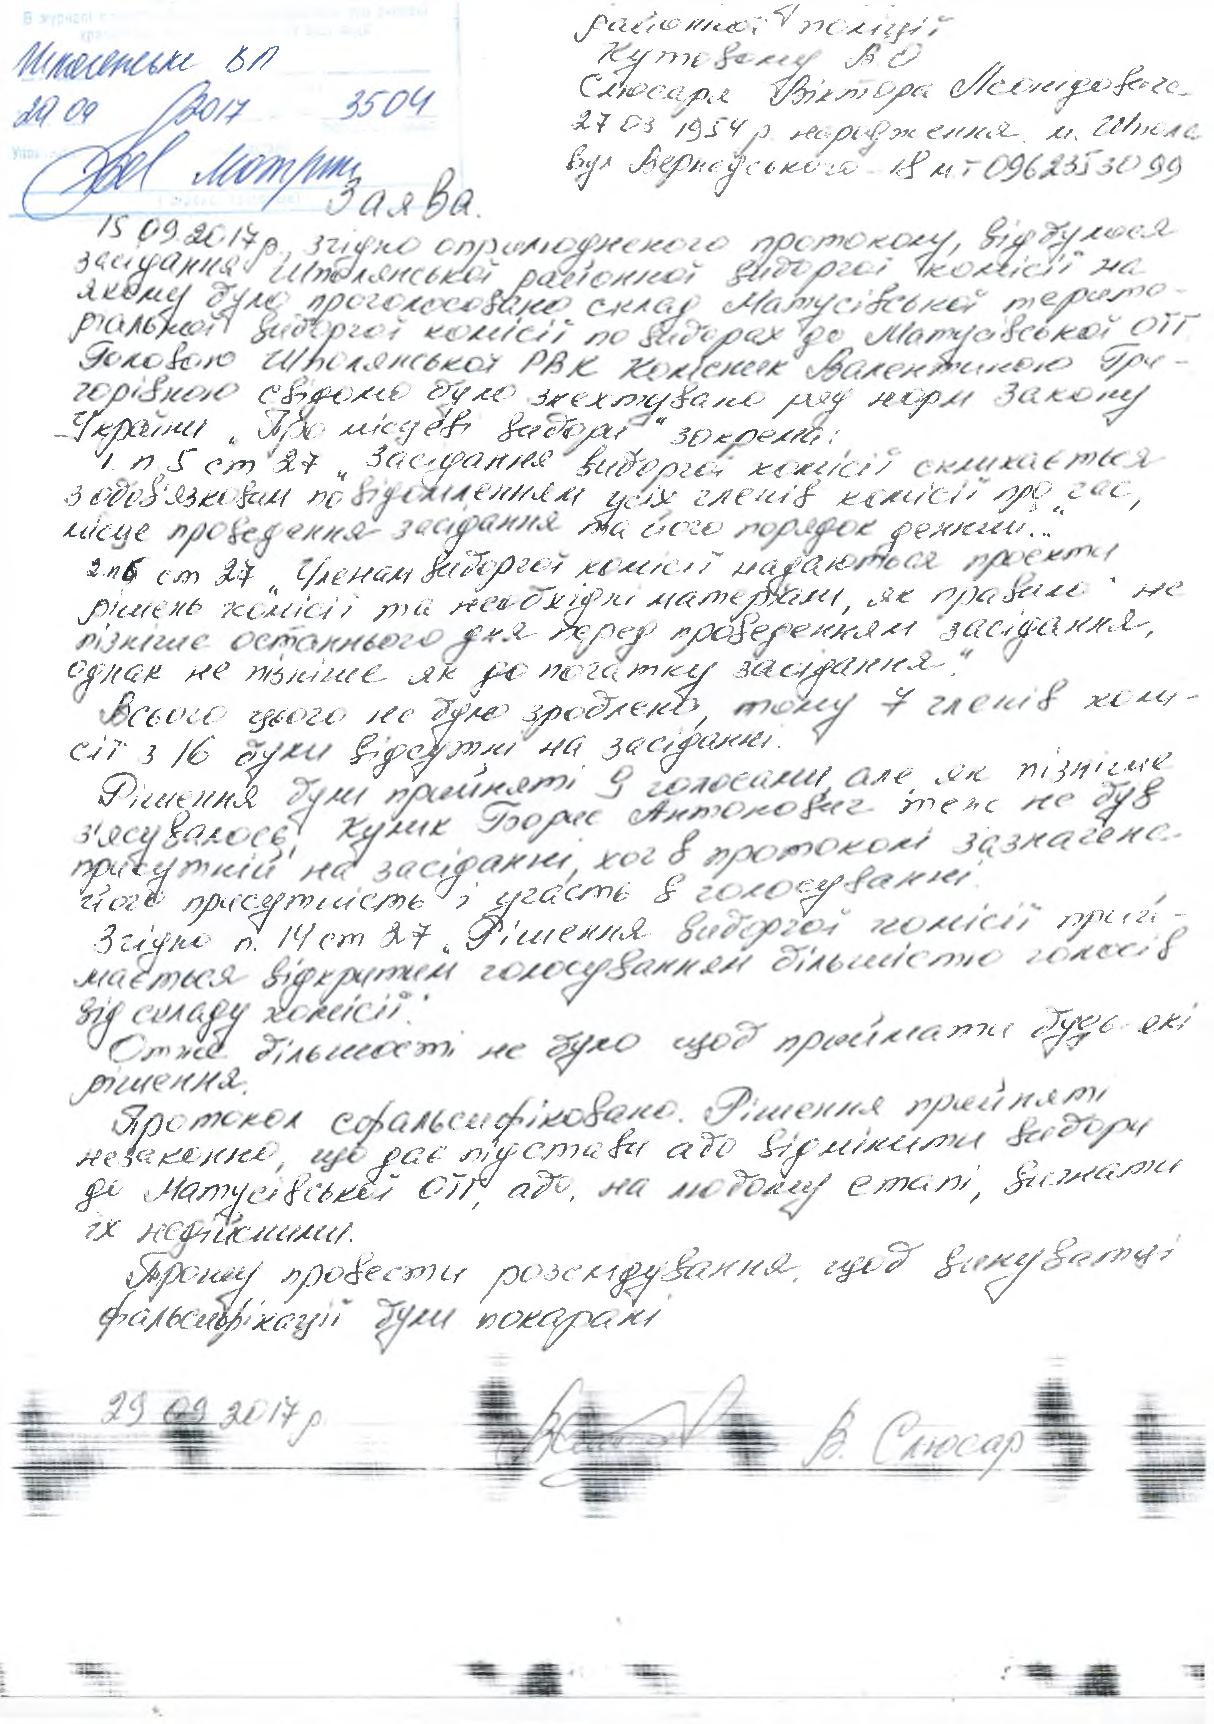 районної поліції
Кутовому В О
Слюсаря Віктора Леонідовича
27 03 1954 р. народження м. Шпола
вул Вернудського 18 м.т 0962353099
Шполянське ВП
29 09 2017 3504
Заява.
15 09.2017р, згідно оприлюдненого протоколу, відбулося
засідання Шполянської районної виборчої комісії на
якому було проголосовано склад Матусівської терито-
ріальної виборчої комісії по виборах до Матусівської ОТГ
Головою Шполянської РВК Колісник Валентиною Гри-
горівною свідомо було знехтувано ряд норм Закону
України „Про місцеві вибори" зокрема:
1. п 5 ст 27 „Засідання виборчої комісії скликається
з обов'язковим повідомленням усіх членів комісії про час,
місце проведення засідання та його порядок денний..."
2.п6 ст 27 „Членам виборчої комісії надаються проекти
рішень комісії та необхідні матеріали, як правило не
пізніше останнього дня перед проведенням засідання,
однак не пізніше як до початку засідання".
Всього цього не було зроблено, тому 7 членів комі-
сії з 16 були відсутні на засіданні.
Рішення були прийняті 9 голосами, але, як пізніше
з'ясувалось, Куник Борис Антонович теж не був
присутній на засіданні, хоч в протоколі зазначено
його присутність і участь в голосуванні.
Згідно п. 14 ст 27 „Рішення виборчої комісії прий-
мається відкритим голосуванням більшістю голосів
від складу комісії".
Отже більшості не було щоб приймати будь-які
рішення.
Протокол сфальсифіковано. Рішення прийняті
незаконно, що дає підстави або відмінити вибори
до Матусівської ОТГ, або, на любому етапі, визнати
їх недійсними.
Прошу провести розслідування, щоб винуватці
фальсифікації були покарані
29 09 2017р. В. Слюсар